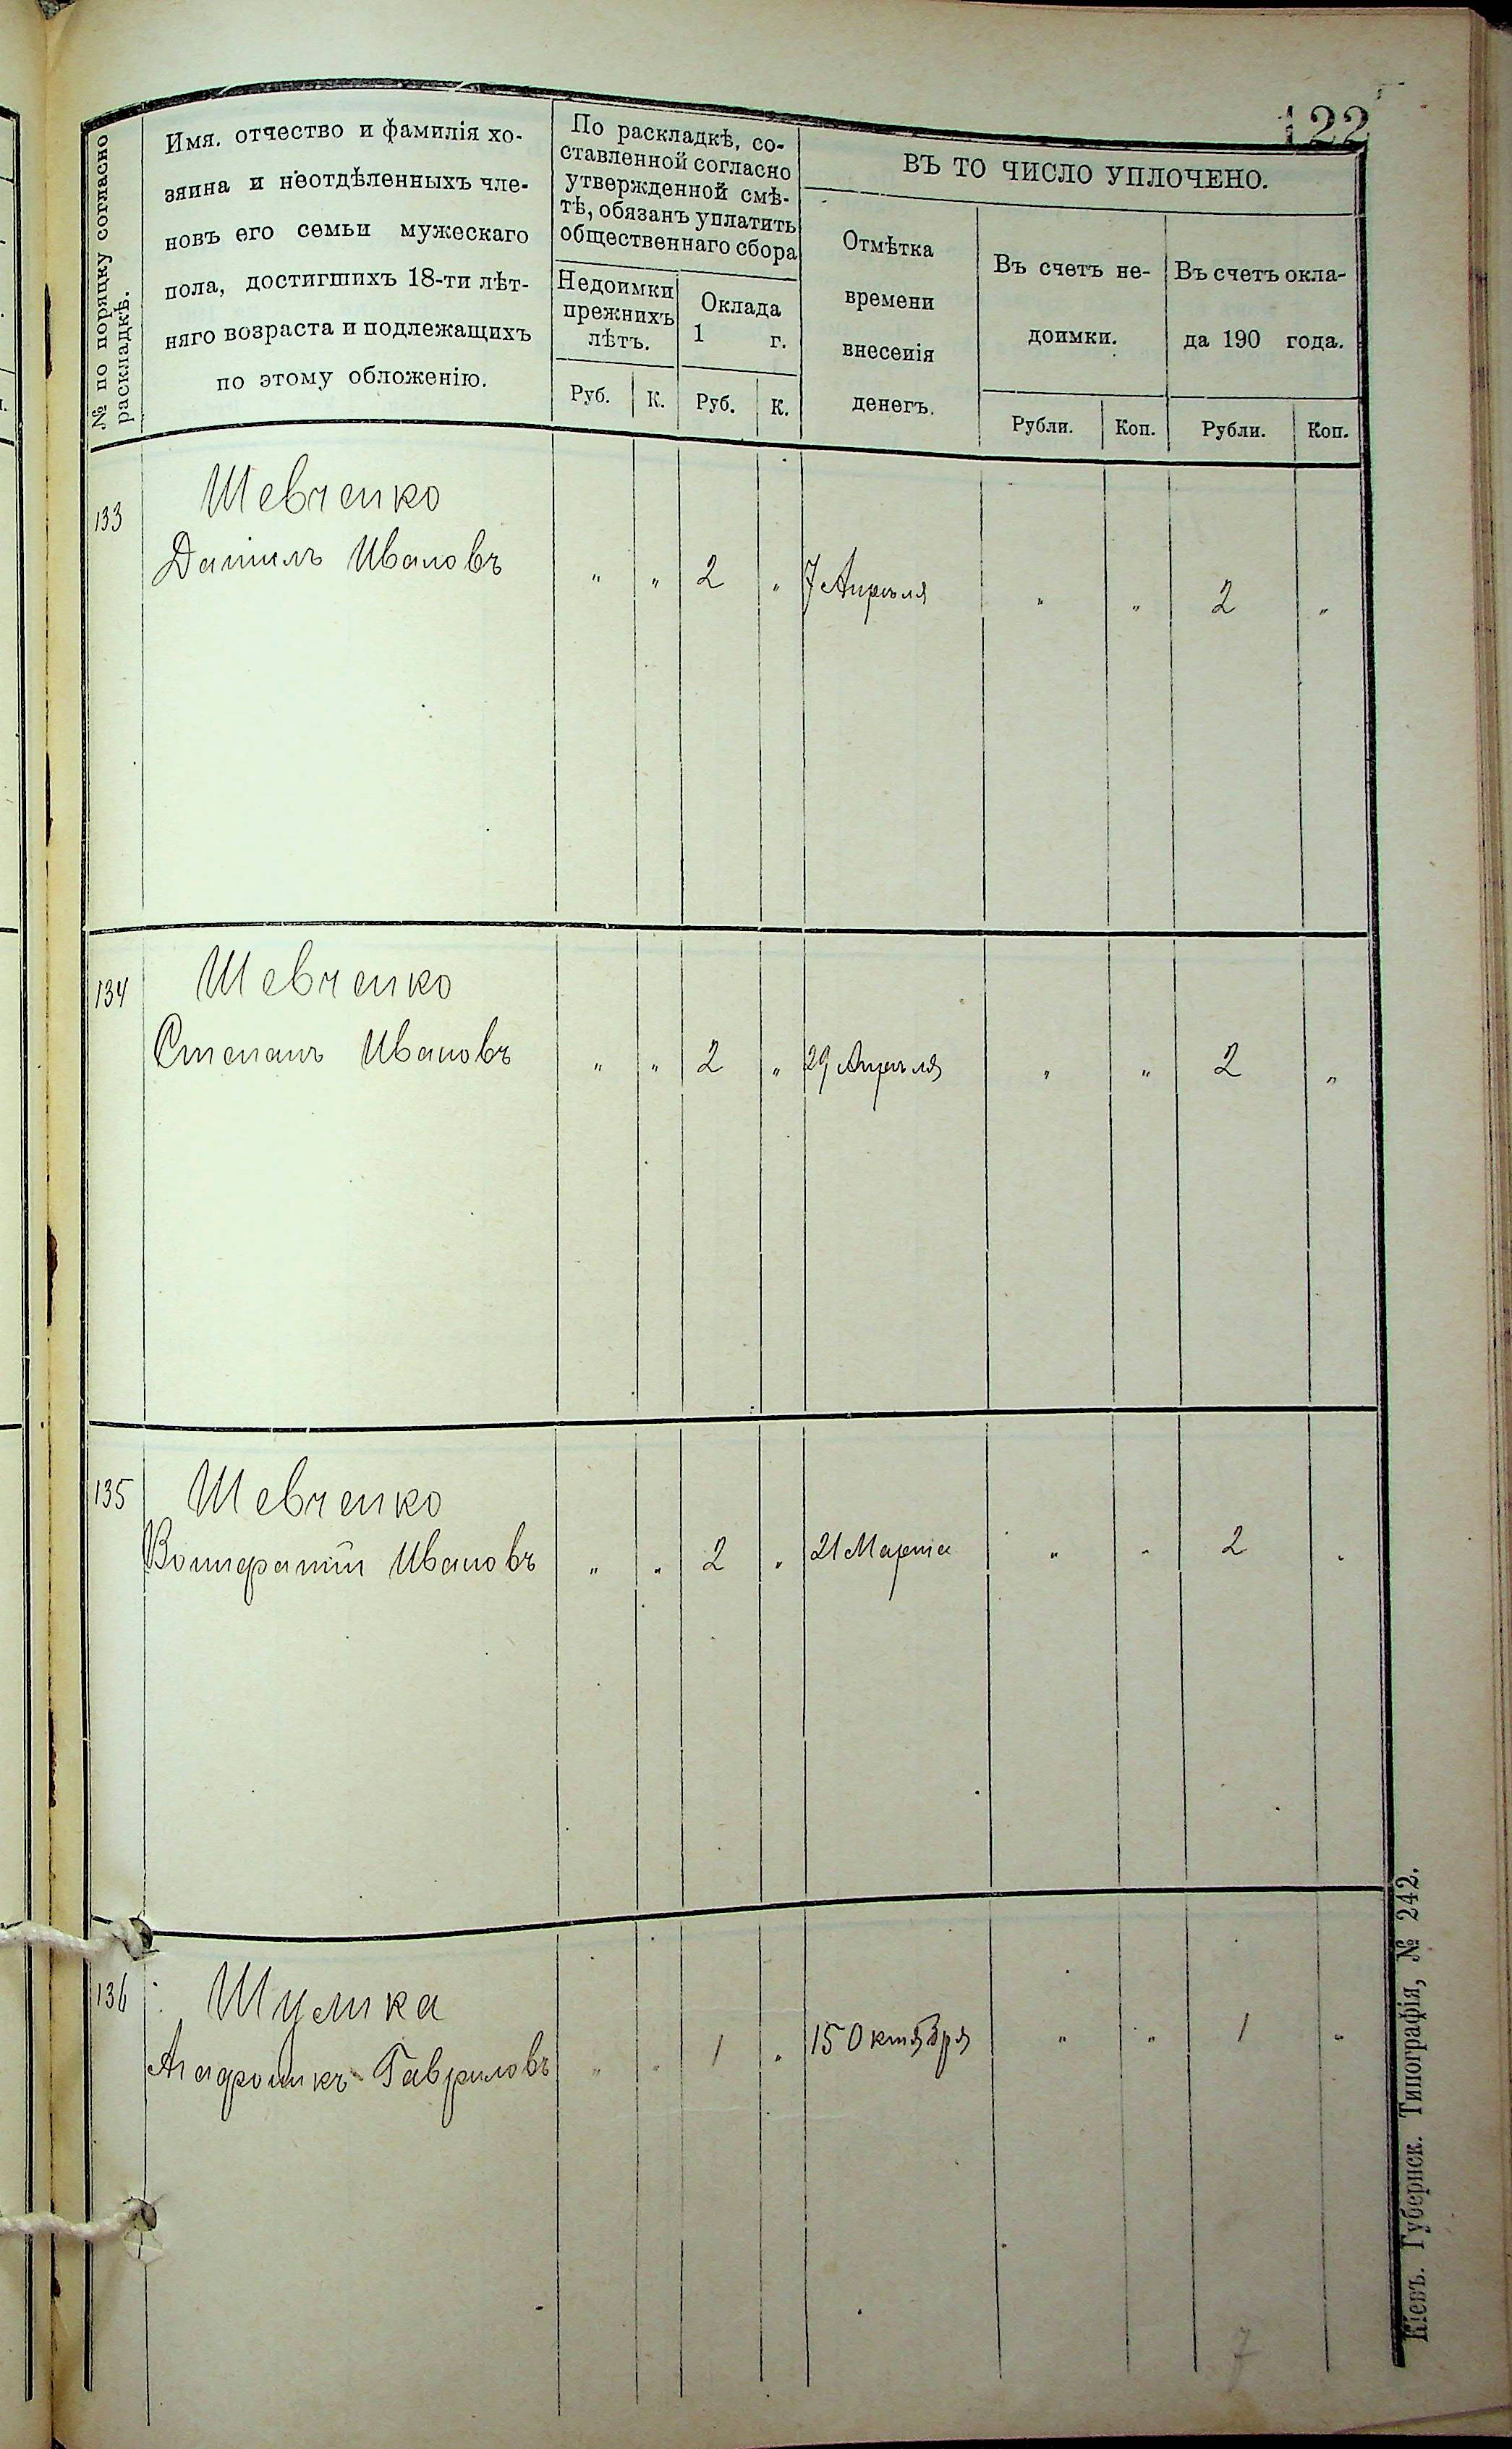 122
№ по порядку согласно
раскладкѣ.
Имя. отчество и фамилія хо-
зяина и неотдѣленныхъ чле-
новъ его семьи мужескаго
пола, достигшихъ 18-ти лѣт-
няго возраста и подлежащихъ
по этому обложенію.
По раскладкѣ, со-
ставленной согласно
утвержденной смѣ-
тѣ, обязанъ уплатить
общественнаго сбора
Недоимки
прежнихъ
лѣтъ.
Руб. К.
Оклада
1 г.
Руб. К.
ВЪ ТО ЧИСЛО УПЛОЧЕНО.
Отмѣтка
времени
внесенія
денегъ.
Въ счетъ не-
доимки.
Рубли. Коп.
Въ счетъ окла-
да 190 года.
Рубли. Коп.
133 Шевченко
Даніилъ Ивановъ " " 2 " 7 Апрѣля " " 2 "
134 Шевченко
Степанъ Ивановъ " " 2 " 29 Апрѣля " " 2 "
135 Шевченко
Ивановъ " " 2 " 21 Марта " " 2 "
136 Шулика
Гавриловъ " " 1 " 15 Октября " " 1 "
7
Кіевъ. Губернск. Типографія, № 242.